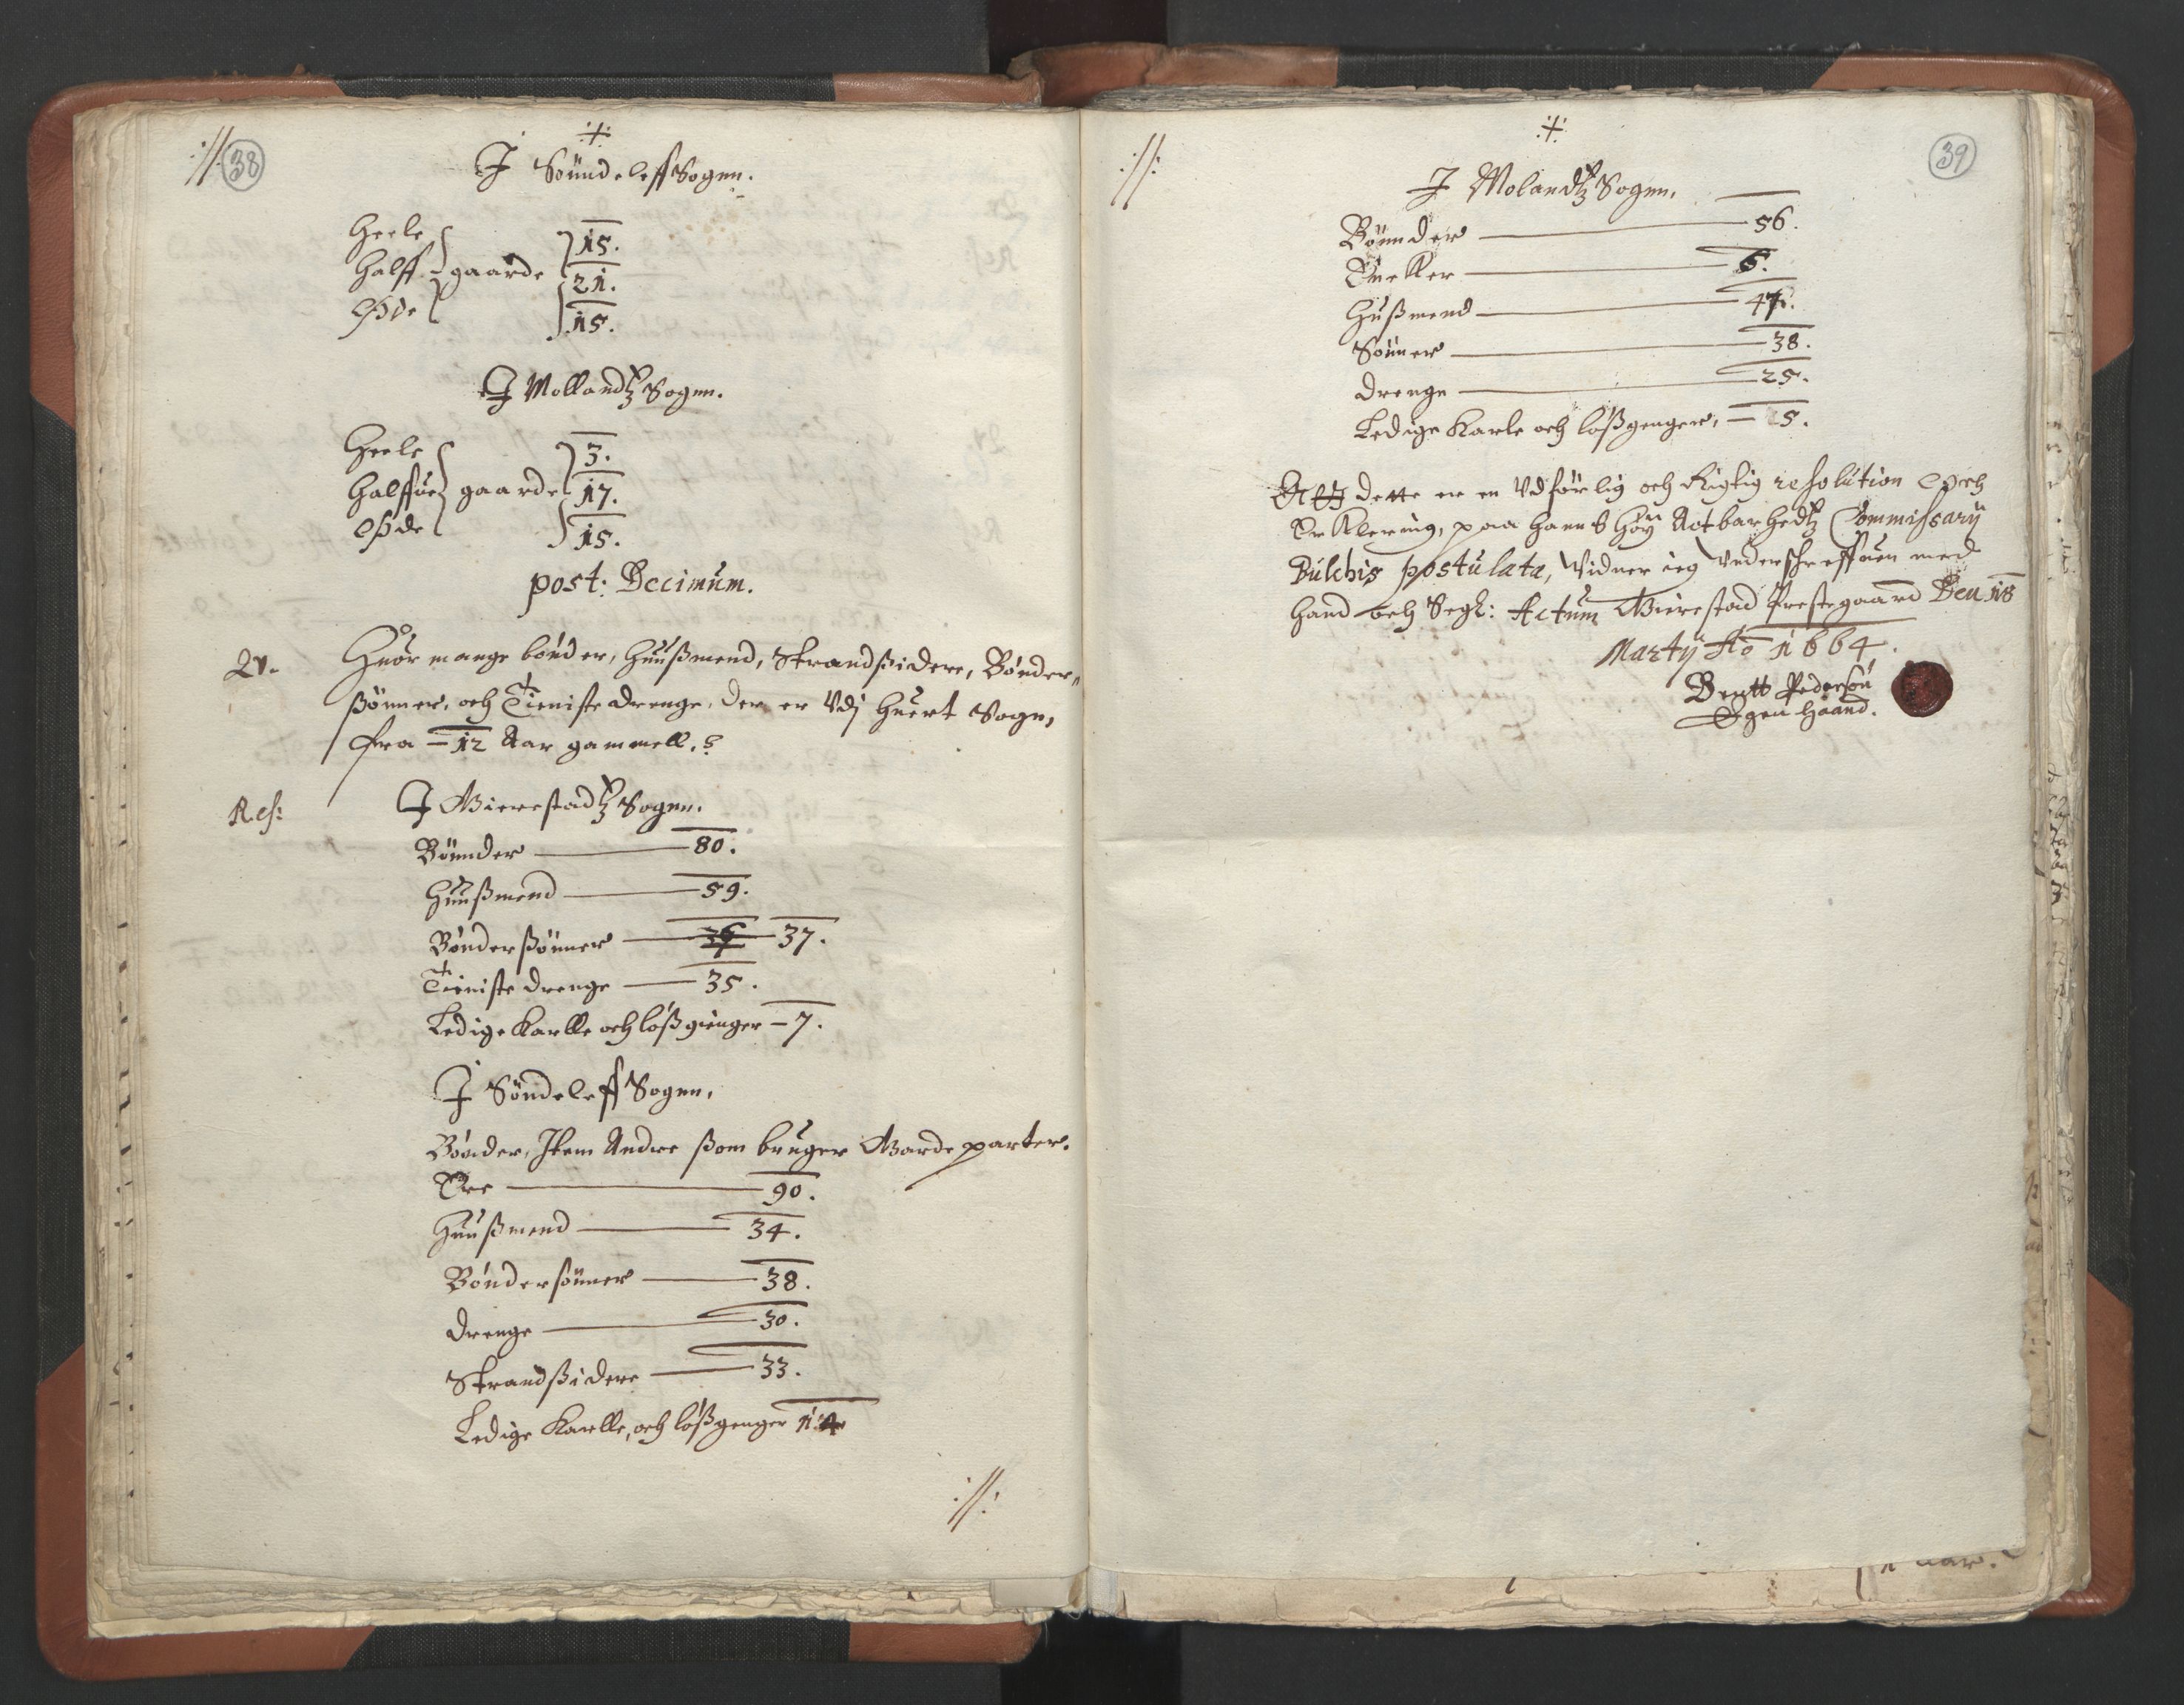 :// 38
:+:
I Sönndeleff Sogen.
Heele
Halff gaarde
Øde
15.
21.
15.
I Mollandtz Sogen.
Heele
Halffue gaarde
Øde
3.
17.
15.
post: Decimum.
Qv. Huor mange bönder, Huußmend, Strandßidere, Bönder„
ßönner, och Tieniste drenge, der er Vdj Huert Sogn,
fra — 12 Aar gammell.?
Res: I Gierestadtz Sogen.
Bönnder — 80.
Huußmend — 59.
Bönderßönner — 37.
Tieniste drenge — 35.
Ledige Karlle och lößgienger — 7.
I Söndeleff Sogen,
Bönder, Item Andre ßom bruger Garde parter.
Ere — 90.
Huußmend — 34.
Böndersönner — 38.
drenge — 30.
Strandßidere — 33.
Ledige Karlle, och lößgenger 14
://:
://:
:+:
39
I Molandtz Sogen.
Bönnder — 56.
Encker — 6.
Hußmend — 47.
Sönner — 38.
drenge — 25.
Ledige Karle och lößgenger, — 5.
At dette er en Vdförlig och Rigtig resolution och
Erklering, paa Hans Höy Actbarhedtz Commissary
Bülchis postulata, Vidner ieg Vnderschreffuen med
Hand och Segl: Actum Gierestad Prestegaard Den 18
Martij Ao 1664.
Bentt Pedersön
Egen Haand.